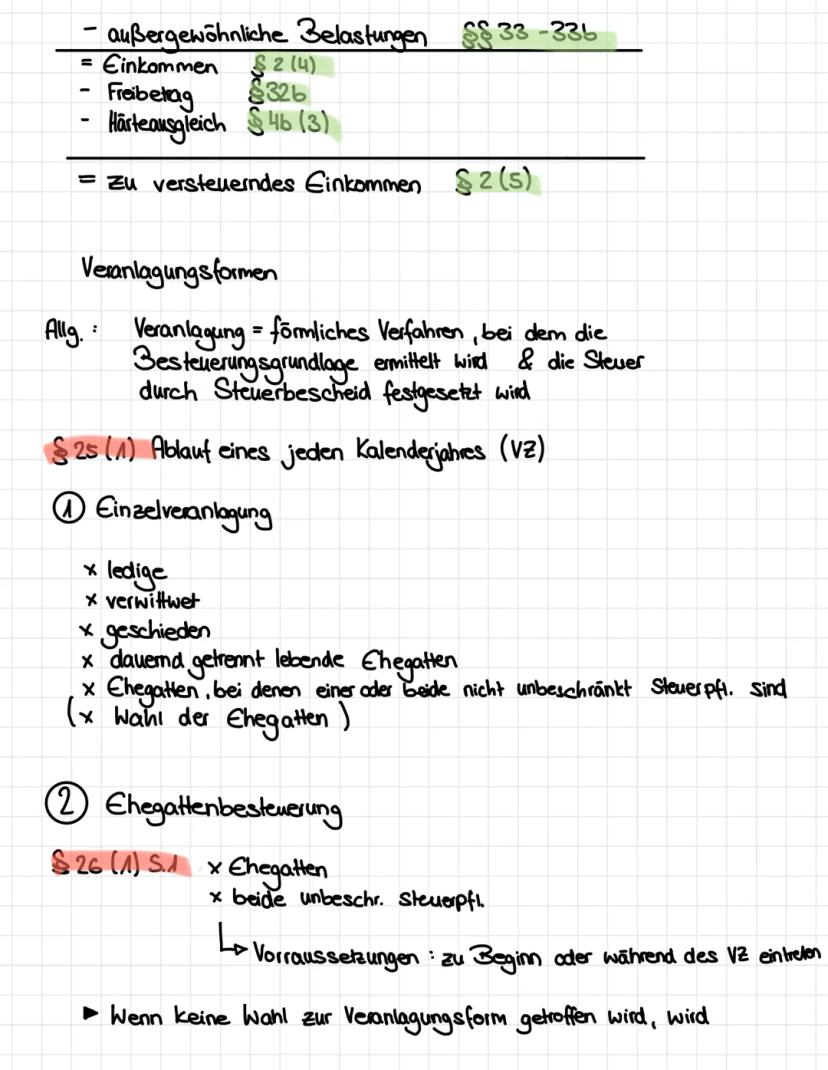 - außergewöhnliche Belastungen §§ 33 - 33b
= Einkommen § 2 (4)
- Freibetrag § 32b
- Härteausgleich § 46 (3)
= zu versteuerndes Einkommen § 2 (5)
Veranlagungsformen
Allg.: Veranlagung = förmliches Verfahren, bei dem die
Besteuerungsgrundlage ermittelt wird & die Steuer
durch Steuerbescheid festgesetzt wird
§ 25 (1) Ablauf eines jeden Kalenderjahres (VZ)
① Einzelveranlagung
x ledige
x verwittwet
x geschieden
x dauernd getrennt lebende Ehegatten
x Ehegatten, bei denen einer oder beide nicht unbeschränkt Steuerpfl. sind
(x Wahl der Ehegatten)
② Ehegattenbesteuerung
§ 26 (1) S.1 x Ehegatten
x beide unbeschr. Steuerpfl.
Vorraussetzungen: zu Beginn oder während des VZ eintreten
► Wenn keine Wahl zur Veranlagungsform getroffen wird, wird